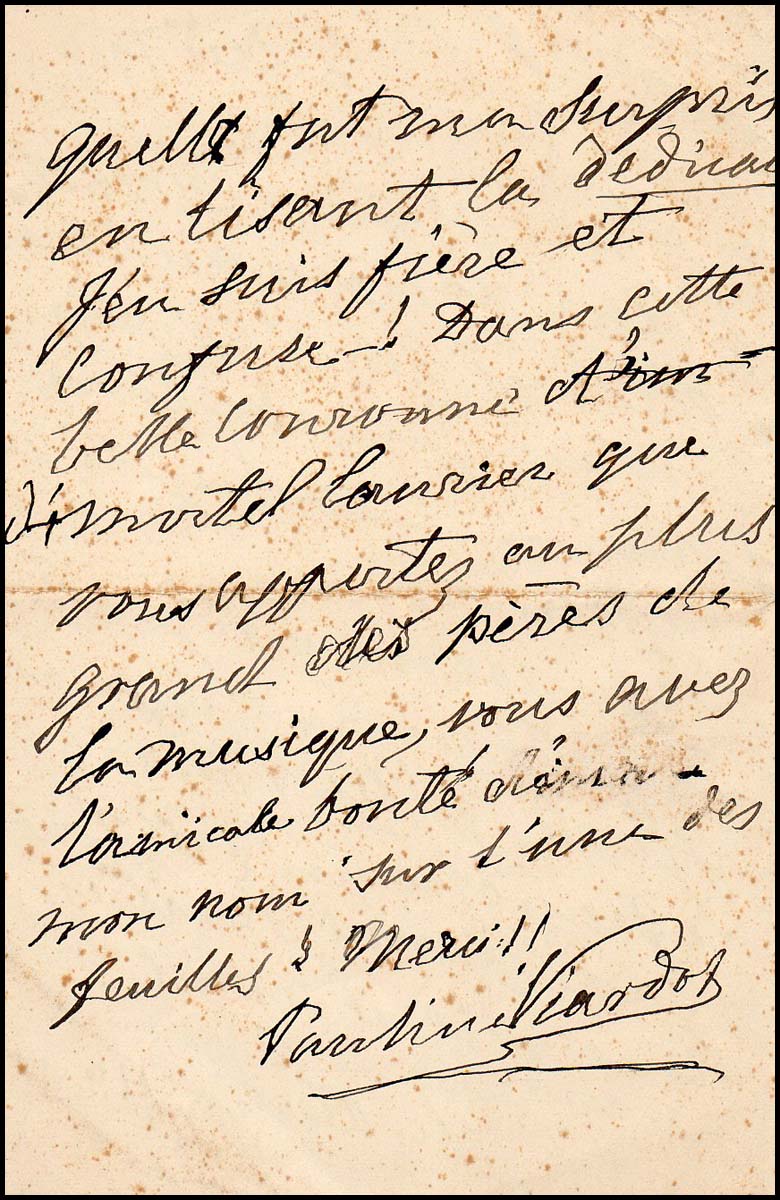 quelle fut ma surpris
en lisant la dédica
J'en suis fière et
confuse ! Dans cette
belle couronne d'im
d'immortel laurier que
vous apportez au plus
grand des pères de
la musique, vous avez
l'amicale bonté
mon nom sur l'une des
feuilles ! Merci !!
Pauline Viardot